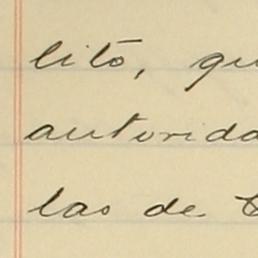 lito, qu
autorida
las de